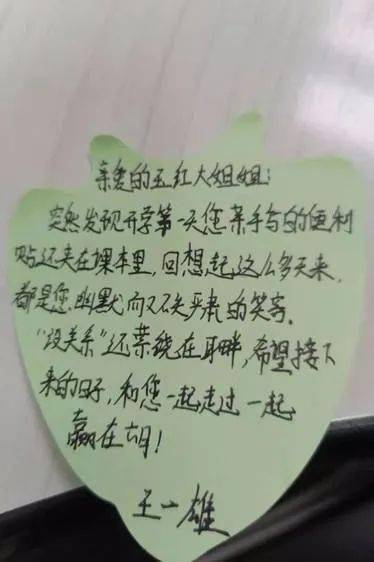 亲爱的王红大姐姐：
突然发现开学第一天您亲手写的便利
贴还夹在课本里，回想起这么多天来，
都是您幽默而又不失严肃的笑容。
“没关系”还萦绕在耳畔，希望接下
来的日子，和您一起走过一起
赢在六月！
王一雄